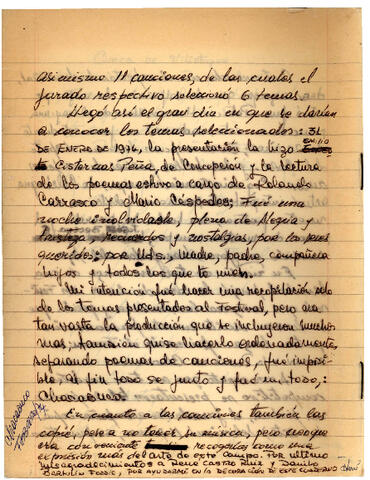 asimismo 11 canciones, de las cuales el
jurado respectivo seleccionó 6 temas.
Llegó así el gran día en que se darían
a conocer los temas seleccionados: 31
DE ENERO DE 1974, la presentación la hizo EMILIO
Cisternas Peña, de Concepción y la lectura
de los poemas estuvo a cargo de Rolando
Carrasco y Mario Céspedes; Fué una
noche inolvidable, plena de Alegría y
recuerdos y nostalgias, por los seres
queridos; por Uds., madre, padre, compañera
hijos y todos los que te aman.
Mi intención fué hacer una recopilación solo
de los temas presentados al Festival, pero era
tan vasta la producción que se incluyeron muchos
mas, también quise hacerlo ordenadamente,
separando poemas de canciones, fué imposi-
ble, al fin todo se juntó y fué un todo,:
Chacabuco
En cuanto a las canciones también las
copié, pese a no tener su música, pero creo que
era conveniente recogerlas como una
expresión más del arte de este campo. Por último
mis agradecimientos a René Castro Ruiz y Danilo
por ayudarme en la decoración de este cuaderno
Chacabuco
Febrero/74